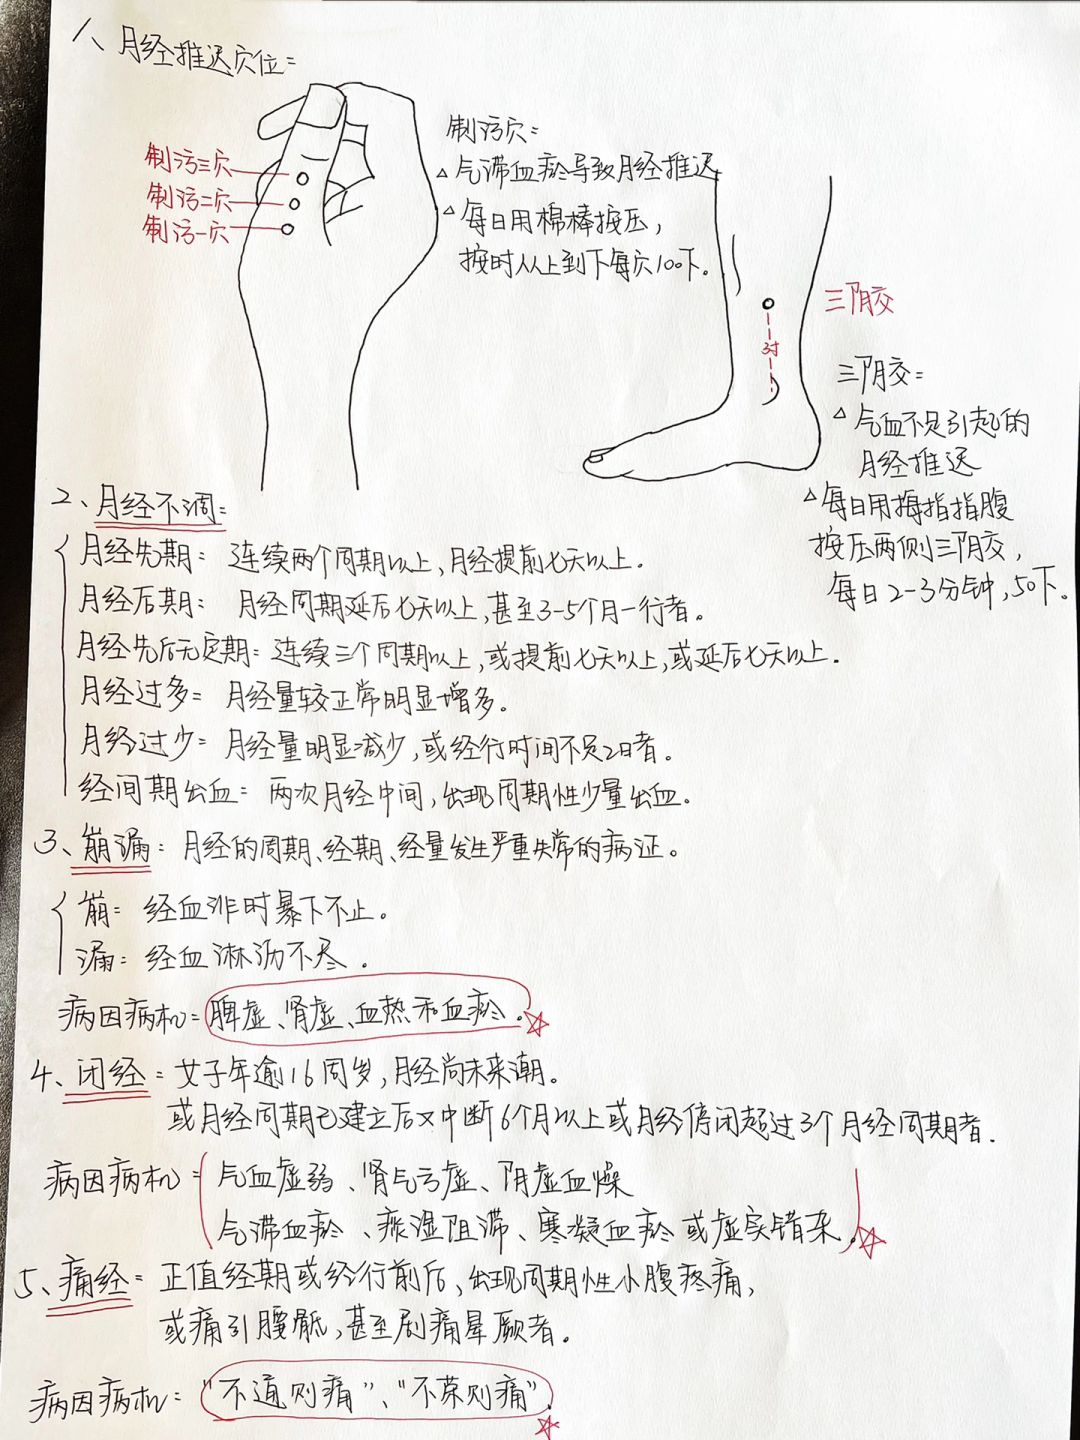 1、月经推迟穴位:
制污穴:
△气滞血瘀导致月经推迟
△每日用棉棒按压,
按时从上到下每穴100下。
制污三穴
制污二穴
制污一穴
三阴交
3寸
三阴交:
△气血不足引起的
月经推迟
△每日用拇指指腹
按压两侧三阴交,
每日2-3分钟,50下。
2、月经不调:
月经先期: 连续两个周期以上,月经提前七天以上.
月经后期: 月经周期延后七天以上,甚至3-5个月一行者。
月经先后无定期:连续三个周期以上,或提前七天以上,或延后七天以上.
月经过多: 月经量较正常明显增多。
月经过少: 月经量明显减少,或经行时间不足2日者。
经间期出血: 两次月经中间,出现周期性少量出血.
3、崩漏: 月经的周期、经期、经量发生严重失常的病证。
崩: 经血非时暴下不止。
漏: 经血淋沥不尽.
病因病机:脾虚、肾虚、血热和血瘀.
4、闭经:女子年逾16周岁,月经尚未来潮。
或月经周期已建立后又中断6个月以上或月经停闭超过3个月经周期者.
病因病机:气血虚弱、肾气亏虚、阴虚血燥
气滞血瘀、痰湿阻滞、寒凝血瘀或虚实错杂.
5、痛经:正值经期或经行前后、出现周期性小腹疼痛,
或痛引腰骶,甚至剧痛晕厥者。
病因病机:"不通则痛"、"不荣则痛".